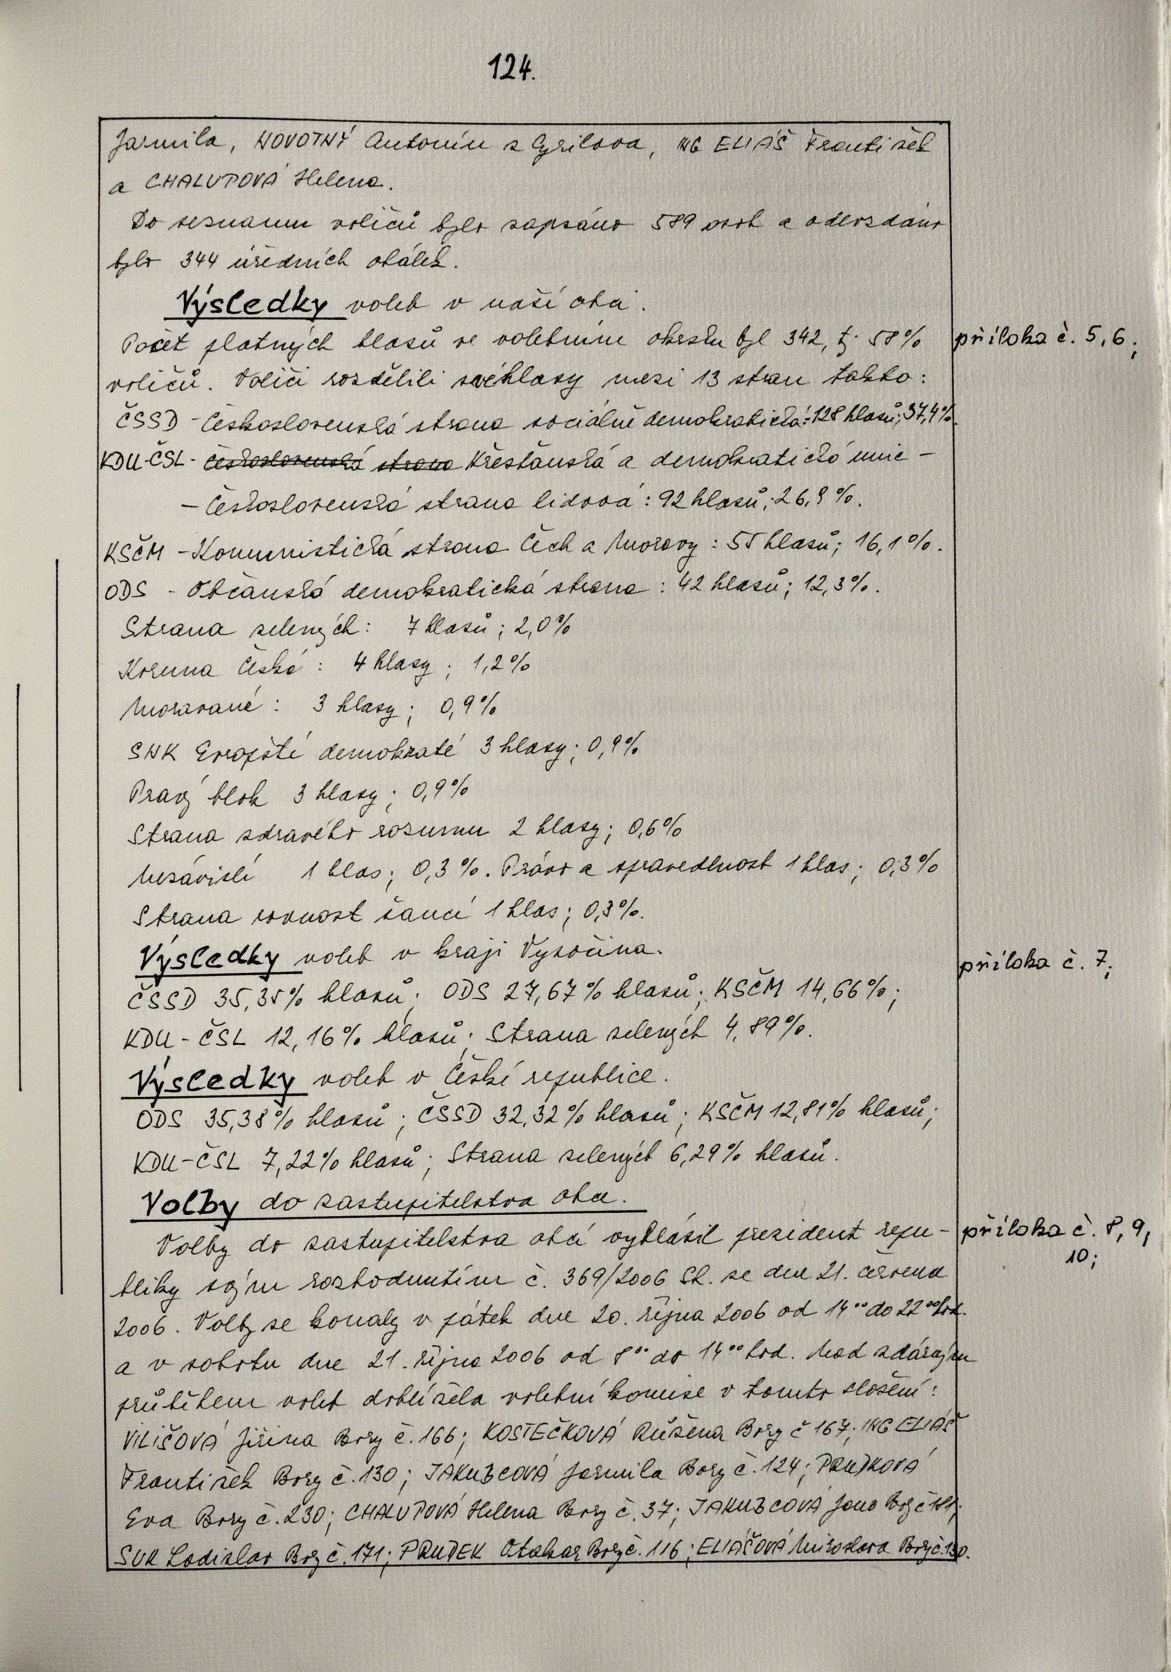 124.
Jarmila, NOVOTNÝ Antonín z Cyrilova, ING ELIÁŠ František
a CHALUPOVÁ Helena.
Do seznamu voličů bylo zapsáno 589 osob a odevzdáno
bylo 344 úředních obálek.
Výsledky voleb v naší obci.
Počet platných hlasů ve volebním okrsku byl 342, tj. 58% příloha č. 5, 6;
voličů. Voliči rozdělili své hlasy mezi 13 stran takto:
ČSSD - Československá strana sociálně demokratická: 128 hlasů; 37,4%.
KDU-ČSL - Československá strana Křesťanská a demokratická unie -
- Československá strana lidová: 92 hlasů; 26,9%.
KSČM - Komunistická strana Čech a Moravy: 55 hlasů; 16,1%.
ODS - Občanská demokratická strana: 42 hlasů; 12,3%.
Strana zelených: 7 hlasů; 2,0%
Koruna Česká: 4 hlasy; 1,2%
Moravané: 3 hlasy; 0,9%
SNK Evropští demokraté 3 hlasy; 0,9%
Pravý blok 3 hlasy; 0,9%
Strana zdravého rozumu 2 hlasy; 0,6%
Nezávislí 1 hlas; 0,3%. Právo a spravedlnost 1 hlas; 0,3%
Strana rovnost šancí 1 hlas; 0,3%.
Výsledky voleb v kraji Vysočina. příloha č. 7;
ČSSD 35,35% hlasů; ODS 27,67% hlasů; KSČM 14,66%;
KDU-ČSL 12,16% hlasů; Strana zelených 4,89%.
Výsledky voleb v České republice.
ODS 35,38% hlasů; ČSSD 32,32% hlasů; KSČM 12,81% hlasů;
KDU-ČSL 7,22% hlasů; Strana zelených 6,29% hlasů.
Volby do zastupitelstva obce.
Volby do zastupitelstva obcí vyhlásil prezident repu- příloha č. 8, 9,
bliky svým rozhodnutím č. 369/2006 Sb. ze dne 21. června 10;
2006. Volby se konaly v pátek dne 20. října 2006 od 14⁰⁰ do 22⁰⁰ hod.
a v sobotu dne 21. října 2006 od 8⁰⁰ do 14⁰⁰ hod. Nad zdárným
průběhem voleb dohlížela volební komise v tomto složení:
VILIŠOVÁ Jiřina Bory č. 166; KOSTEČKOVÁ Růžena Bory č 167; ING ELIÁŠ
František Bory č. 130; JAKUBCOVÁ Jarmila Bory č. 124; PRUDKOVÁ
Eva Bory č. 230; CHALUPOVÁ Helena Bory č. 37; JAKUBCOVÁ Jana Bory č
Ladislav Bory č. 171; Otakar Bory č. 116; ELIÁŠOVÁ Miroslava Bory č. 130.